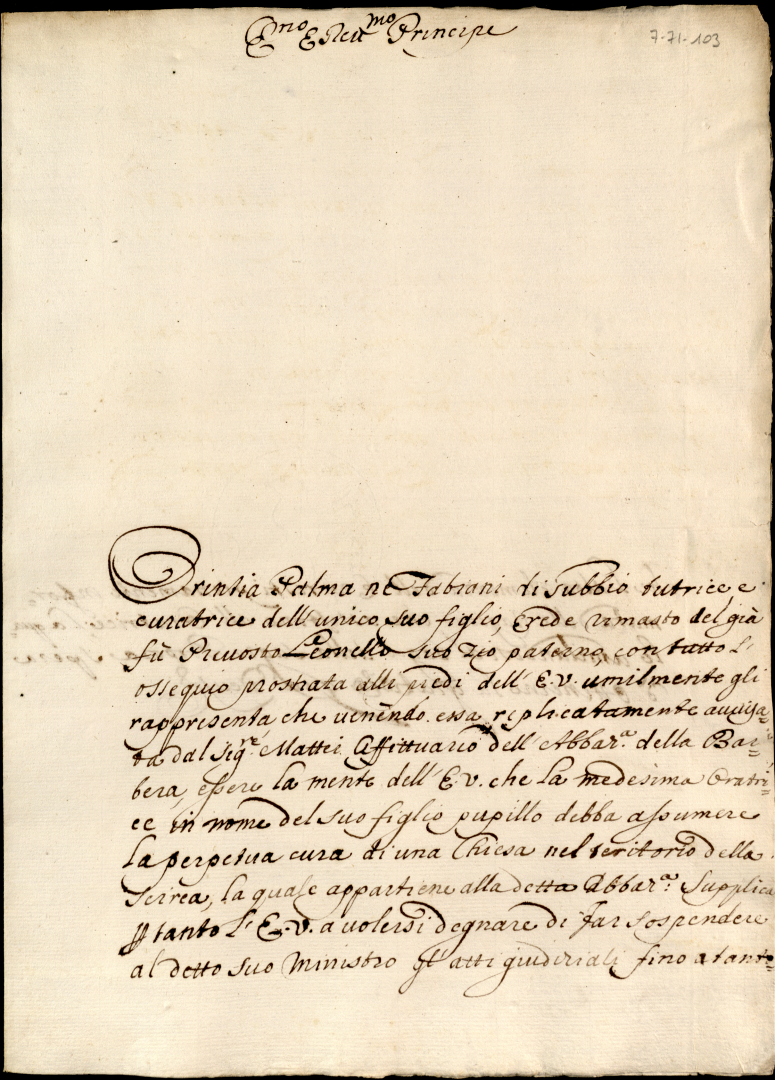 Emo E Reu.mo Principe
7-71-103
Orintia Palma ne Fabiani di Gubbio tutrice, e
curatrice dell' unico suo figlio, Erede rimasto del già
fù Preuosto Leonello suo Zio paterno, con tutto l'
ossequio prostrata alli piedi dell' E.V. umilmente gli
rappresenta, che uenendo essa replicatamente auuisa=
ta dal Sig.re Mattei Affittuario dell' Abbaz.a della Bar=
bera, essere la mente dell' E.V. che la medesima Oratri=
ce in nome del suo figlio pupillo debba assumere
la perpetua cura di una Chiesa nel teritorio della
Scirea, la quale appartiene alla detta Abbaz.a: Supplica
p tanto l' E.V. a uolersi degnare di far sospendere
al detto suo Ministro gl' atti giudiziali fino a tanto=